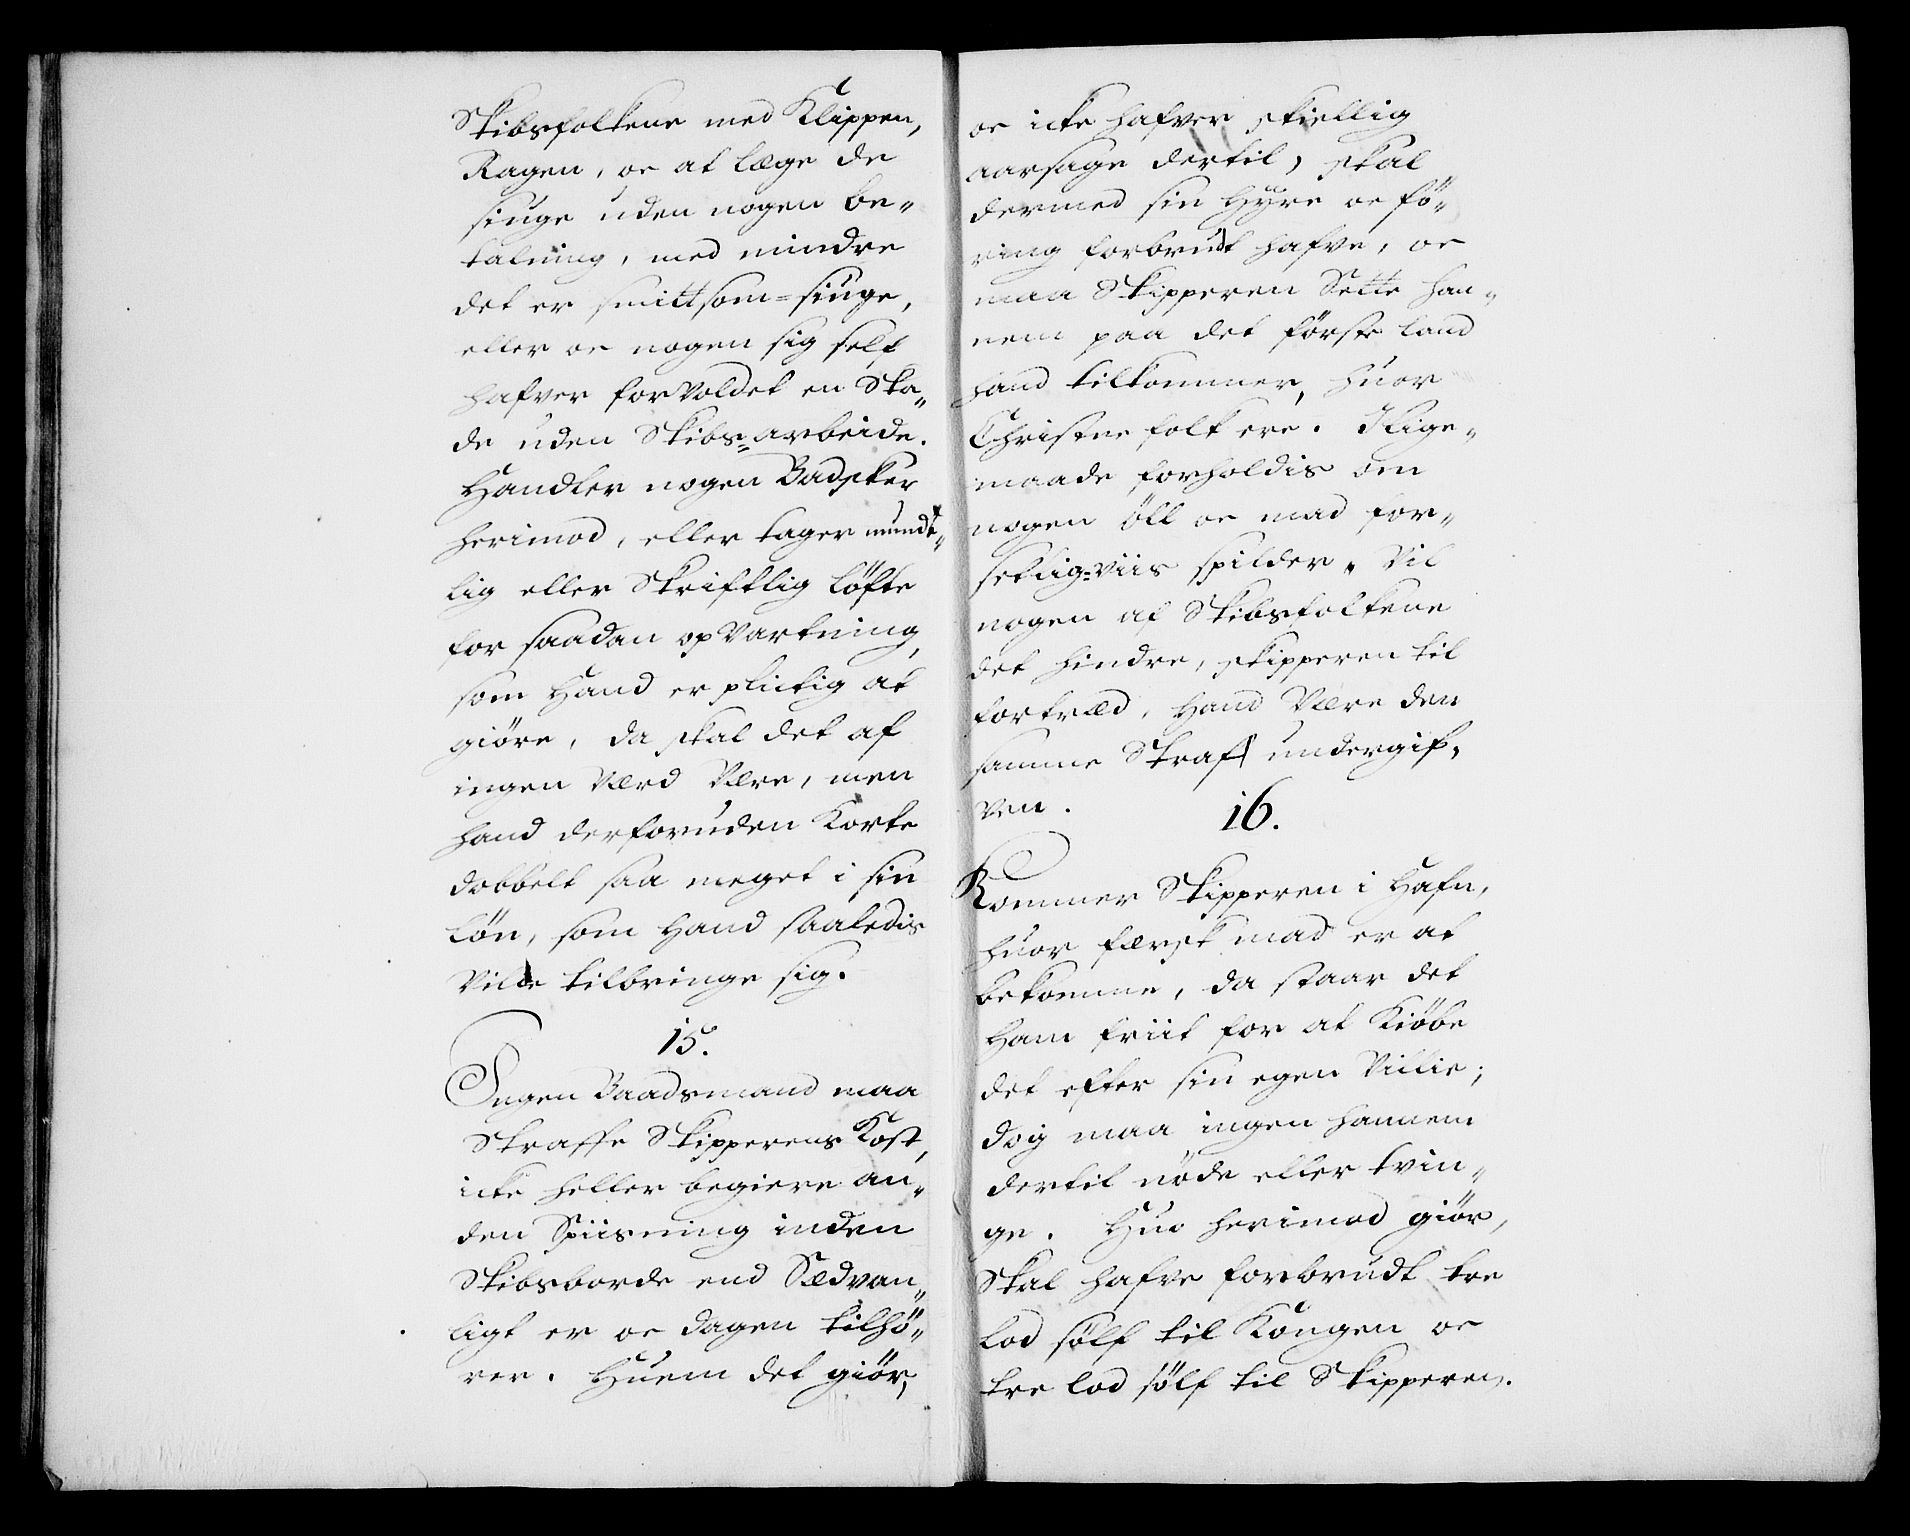 Skibsfolkene med Klippen,
Ragen, oc at læge de
siuge uden nogen be„
talning, med mindre
det er smittsom=siuge,
eller oc nogen sig self
hafver forvoldet en Ska„
de uden Skibs=arbeide.
Handler nogen Badsker
herimod, eller tager mundt„
lig eller Skriftlig løfte
for saadan opvartning,
som Hand er plictig at
giøre, da skal det af
ingen Værd Være, men
hand derforuden Korte
dobbelt saa meget i sin
løn, som Hand saaledis
Vilde tilbringe sig.
15.
Ingen Baadsmand maa
Straffe Skipperens Kost,
icke heller begiere an„
den Spiisning inden
Skibsborde end Sædvan„
ligt er oc dagen tilhø„
rer. Huem det giør,
oc icke hafver skiellig
aarsage dertil, skal
dermed sin Hyre oc fø„
ring forbrudt hafve, oc
maa Skipperen Sette han„
nem paa det første land
hand tilkommer, huor
Christne folk ere. Lige„
maade forholdis om
nogen øll oc mad for„
setlig=viis spilder. Vil
nogen af Skibsfolkene
det hindre, skipperen til
fortræd, Hand Være den
samme Straf undergif„
ven.
16.
Kommer Skipperen i Hafn,
huor færsk mad er at
bekomme, da staar det
Ham friit for at Kiøbe
det efter sin egen Villie;
dog maa ingen hannem
dertil nøde eller tvin„
ge. Huo herimod giør,
Skal hafve forbrudt tre
lod sølf til Kongen oc
tre lod sølf til Skipperen.